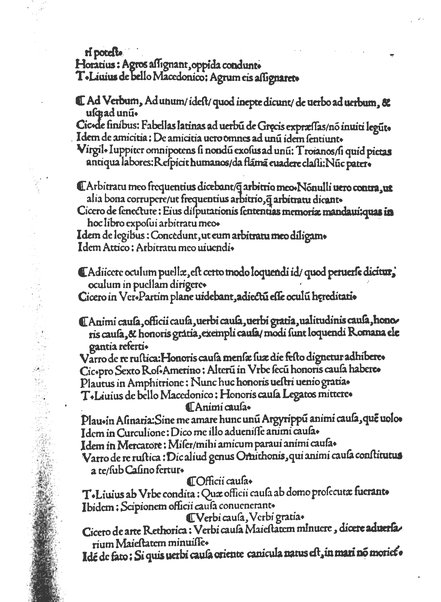 ri poteſt•
Horatius: Agros aſſignant, oppida condunt•
T•Liuius de bello Macedonico: Agrum eis aſſignaret•
¶ Ad Verbum, Ad unum/ ideſt/ quod inepte dicunt/ de uerbo ad uerbum, &
uſq; ad unū•
Cic•de finibus: Fabellas latinas ad uerbū de Gręcis expræſſas/nō inuiti legūt•
Idem de amicitia: De amicitia uero omnes ad unū idem ſentiunt•
Virgil• Iuppiter omnipotens ſi nondū exoſus ad unū: Troianos/ſi quid pietas
antiqua labores: Reſpicit humanos/da flāmā euadere claſſi: Nūc pater•
¶Arbitratu meo frequentius dicebant/q̄ arbitrio meo•Nōnulli uero contra, ut
alia bona corrupere/ut frequentius arbitrio, q̄ arbitratu dicant•
Cicero de ſenectute: Eius diſputationis ſententias memoriæ mandaui: quas in
hoc libro expoſui arbitratu meo•
Idem de legibus: Concedunt, ut eum arbitratu meo diligam•
Idem Attico: Arbitratu meo uiuendi•
¶Adiicere oculum puellæ, eſt certo modo loquendi id/ quod peruerſe dicitur,
oculum in puellam dirigere•
Cicero in Ver•Partim plane uidebant, adiectū eſſe oculū hęreditati•
¶Animi cauſa, officii cauſa, uerbi cauſa, uerbi gratia, ualitudinis cauſa, hono
ris cauſa, & honoris gratia, exempli cauſa/ modi ſunt loquendi Romana ele
gantia referti•
Varro de re ruſtica: Honoris cauſa menſæ ſuæ die feſto dignetur adhibere•
Cic•pro Sexto Roſ•Amerino: Alterū in Vrbe ſecū honoris cauſa habere•
Plautus in Amphitrione: Nunc huc honoris ueſtri uenio gratia•
T•Liuius de bello Macedonico: Honoris cauſa Legatos mittere•
¶Animi cauſa•
Plau•in Aſinaria: Sine me amare hunc unū Argyrippū animi cauſa, quē uolo•
Idem in Curculione: Dico me illo adueniſſe animi cauſa•
Idem in Mercatore: Miſer/mihi amicum paraui animi cauſa•
Varro de re ruſtica: Dic aliud genus Ornithonis, qui animi cauſa conſtitutus
a te/ſub Caſino fertur•
¶Officii cauſa•
T•Liuius ab Vrbe condita: Quæ officii cauſa ab domo proſecutæ fuerant•
Ibidem: Scipionem officii cauſa conuenerant•
¶Verbi cauſa, Verbi gratia•
Cicero de arte Rethorica: Verbi cauſa Maieſtatem minuere, dicere aduerſa
rium Maieſtatem minuiſſe•
Idē de fato: Si quis uerbi cauſa oriente canicula natus eſt, in mari nō moriet̄•